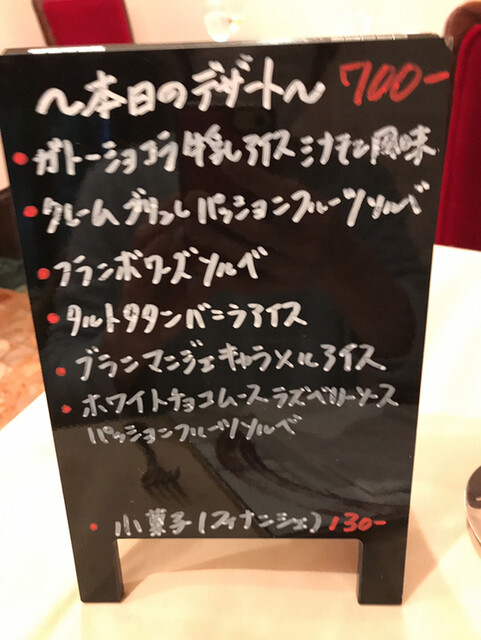 〜本日のデザート〜 700-
・ガトーショコラ 牛乳アイス シナモン風味
・クレームブリュレ パッションフルーツソルベ
・フランボワーズソルベ
・タルトタタンバニラアイス
・ブランマンジェキャラメルアイス
・ホワイトチョコムース ラズベリーソース
パッションフルーツソルベ
・小菓子(フィナンシェ) 130-